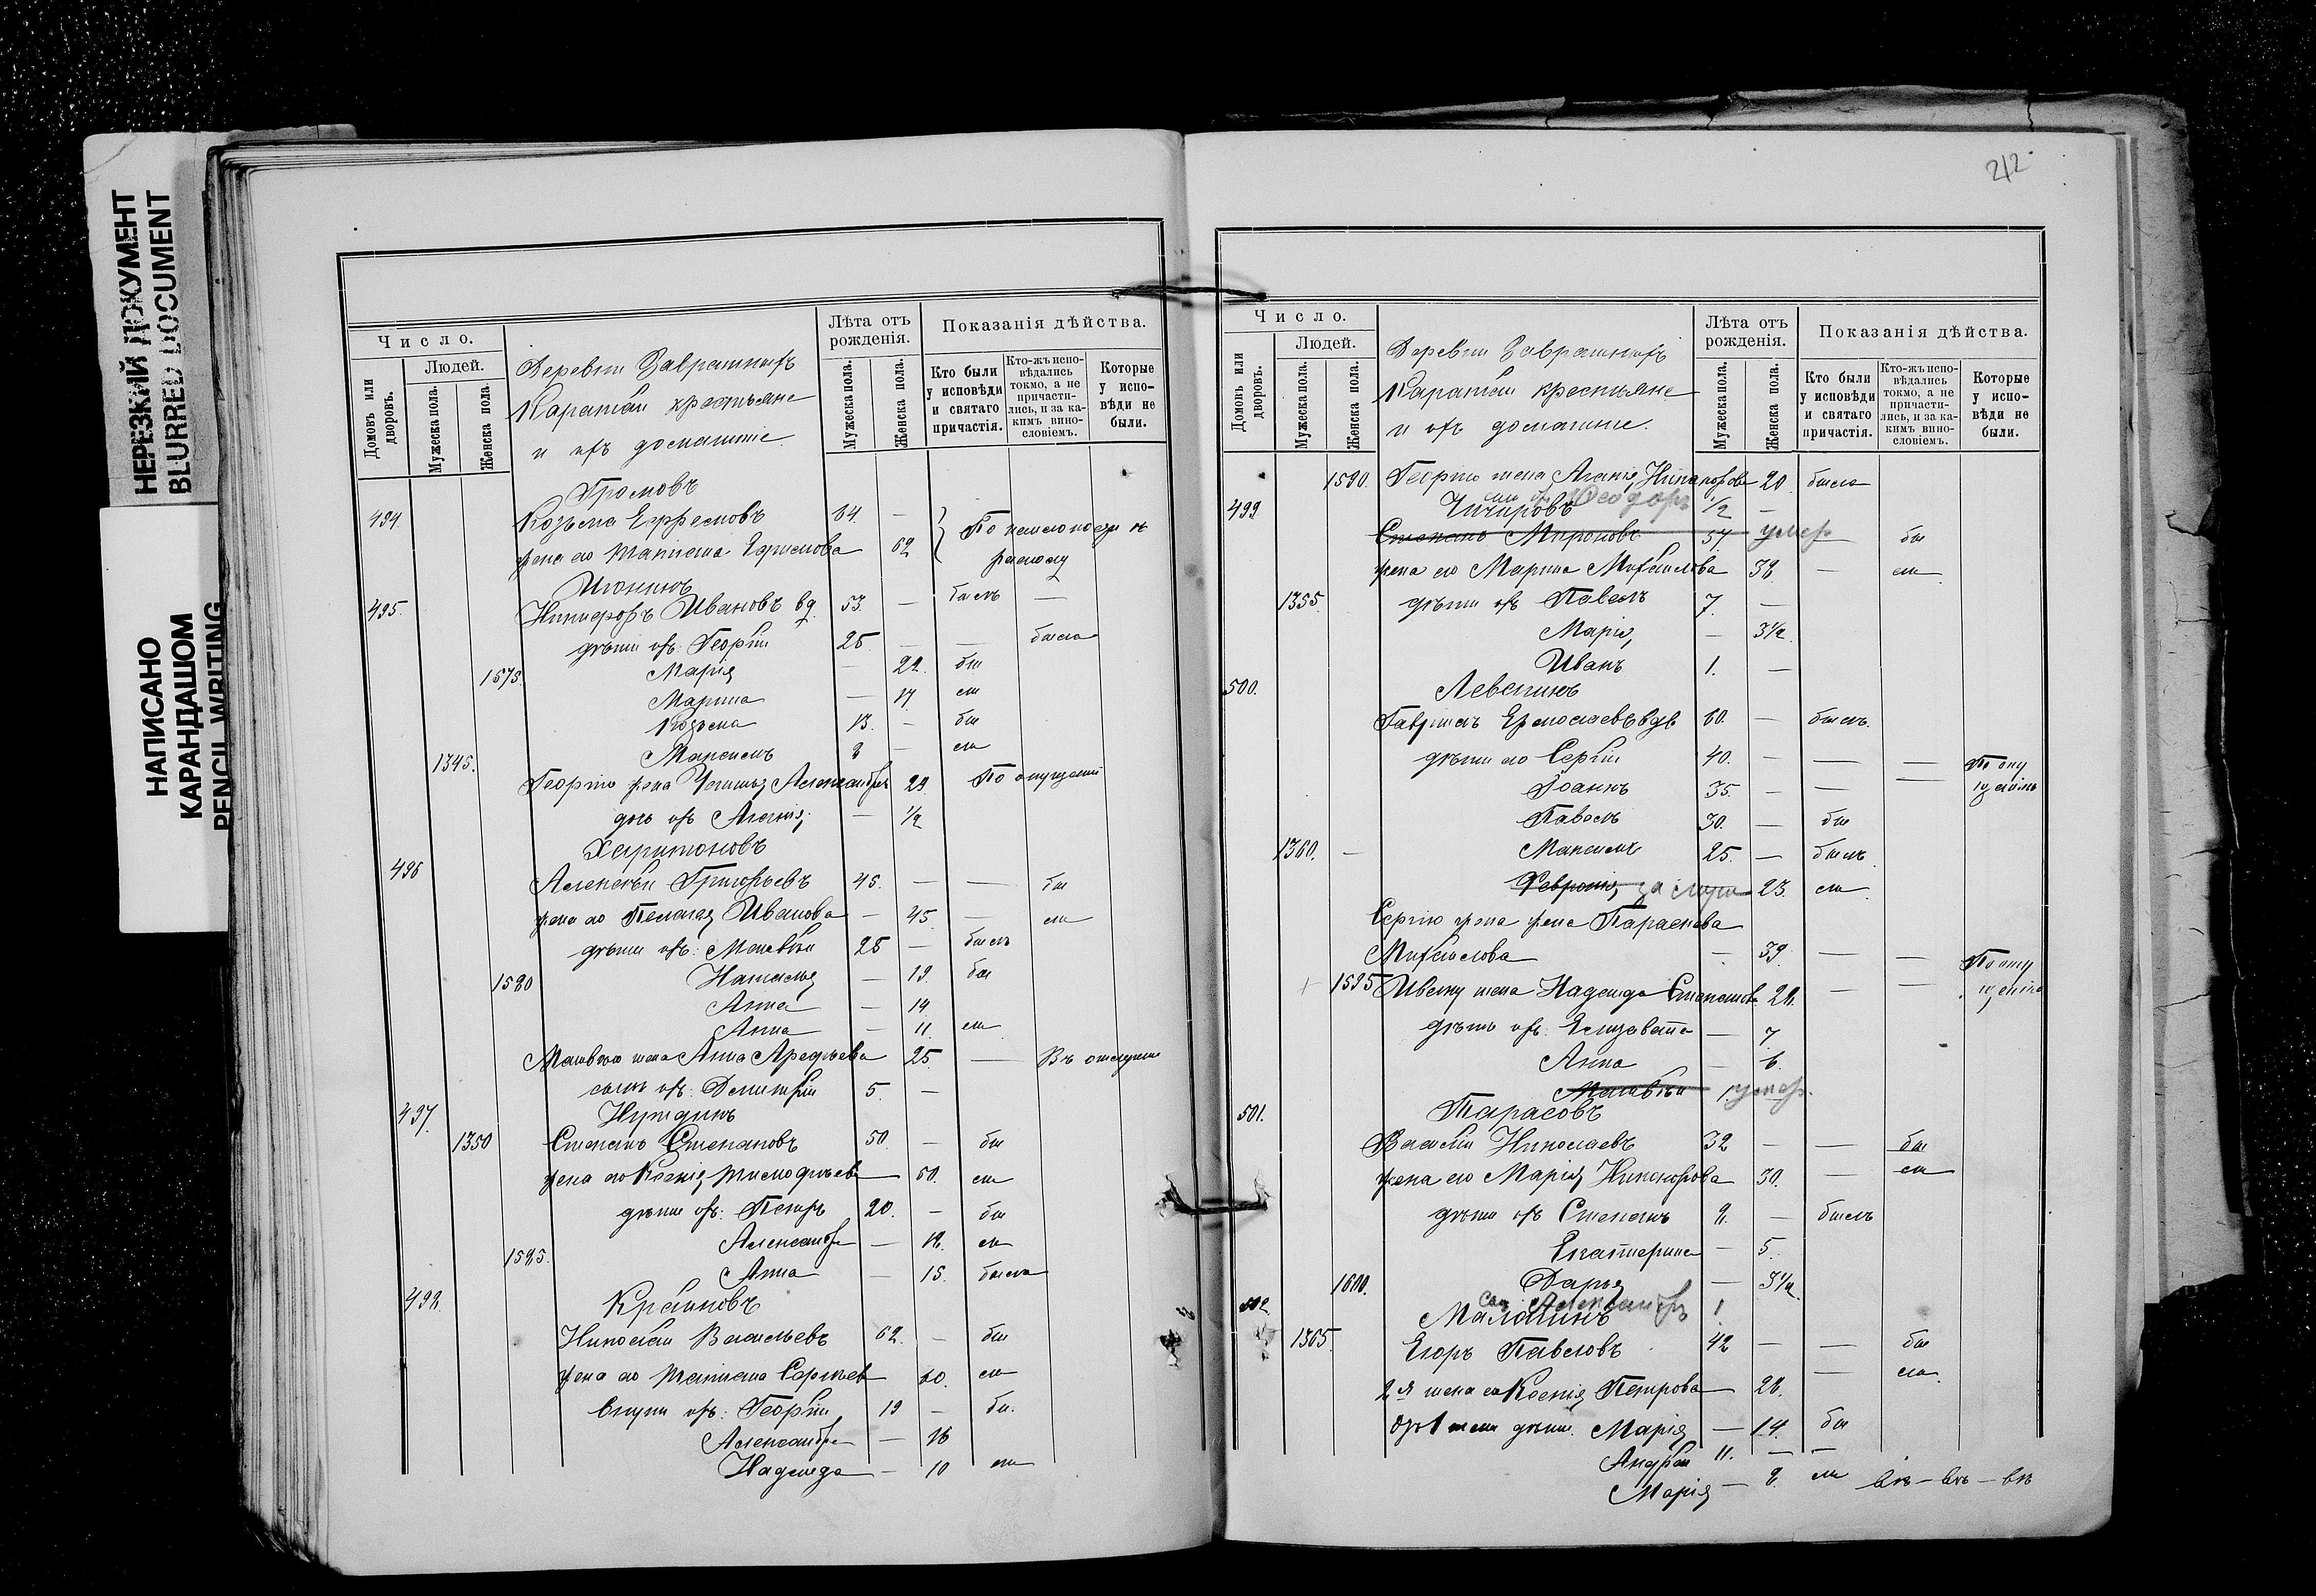 НЕРЕЗКИЙ ДОКУМЕНТ
BLURRED DOCUMENT
НАПИСАНО
КАРАНДАШОМ
PENCIL WRITING
Число.
Домовъ или дворовъ.
Людей.
Мужеска пола.
Женска пола.
Деревни
Каратай крестьяне
и ихъ домашніе.
Лѣта отъ рожденія.
Мужеска пола.
Женска пола.
Показанія дѣйства.
Кто были у исповѣди и святаго причастія.
Кто-жъ исповѣдались токмо, а не причастились, и за какимъ винословіемъ.
Которые у исповѣди не были.
Громовъ
494 Козьма Ефремовъ 64. —
жена его Татіана Ефимова 62 По склонности къ расколу
495. Никифоръ Ивановъ вд. 53. — былъ —
дѣти ихъ: Георгій 25. — —
1575. Марія — 22. бы
Марина — 17. ли
Козьма 13. — бы
1345. Максимъ 8 — ли
Георгію жена Александр 23. По опущенію
дочь ихъ — 1/2
Харитоновъ
496 Алексѣй Григорьевъ 45. — — бы
жена его Пелагія Иванова — 45 — ли
дѣти ихъ: Матвѣй 25 — былъ
1580 Наталья — 19. бы
Анна — 14.
Анна — 11. ли
Матвѣю жена Анна Арефьева 25. — Въ отлучкѣ
сынъ ихъ: Димитрій 5. —
497. Нуждинъ
1350 Степанъ Степановъ 50. — бы
жена его Ксенія Тимофѣева 50. ли
дѣти ихъ: Петръ 20. — бы
Александра — 18. ли
1585. Анна — 15. была
498. Крайновъ
Николай Васильевъ 62. — бы
жена его Татіана Сергѣева 60. ли
внуки ихъ: Георгій 19 — бы.
Александра — 16
Надежда — 10 ли
212
Число.
Домовъ или дворовъ.
Людей.
Мужеска пола.
Женска пола.
Деревни
Каратай крестьяне
и ихъ домашніе.
Лѣта отъ рожденія.
Мужеска пола.
Женска пола.
Показанія дѣйства.
Кто были у исповѣди и святаго причастія.
Кто-жъ исповѣдались токмо, а не причастились, и за какимъ винословіемъ.
Которые у исповѣди не были.
1590. Георгію жена Никанорова 20. была
Ѳеодоръ 1/2
499 Чичировъ —
Степанъ Мироновъ 57. умер — бы
жена его Марина Михайлова 38 — ли
1355. дѣти ихъ Павелъ 7. —
Марія — 3 1/2
Иванъ 1. —
500. Левенинъ
Гавріилъ Ермолаевъ вдв 60. — былъ.
дѣти его Сергій 40. — — — По опу
Іоаннъ 35. — — щенію
Павелъ 30. — бы
1360. — Максимъ 25. — былъ
Февронія 23. ли
Сергію жена Параскева
Михайлова — 39. — — По опу
1595 Ивану жена Надежда Степанова 28. — — щенію
дѣти ихъ: Елизавета — 7
Анна — 6.
Матвѣй 1. умер.
501. Тарасовъ
Василій Николаевъ 32 — — бы
жена его Марія Никанорова 30. — ли
дѣти ихъ Степанъ 8. — былъ
Екатерина — 5.
1600. Дарья — 3 1/2
Александръ 1.
502. Малатинъ
1365. Егоръ Павловъ 42 — — бы
2я жена его Ксенія Петрова 28. — ли.
отъ 1 жены дѣти. Марія — 14. бы
Андрей 11. — —
Марія — 8. ли